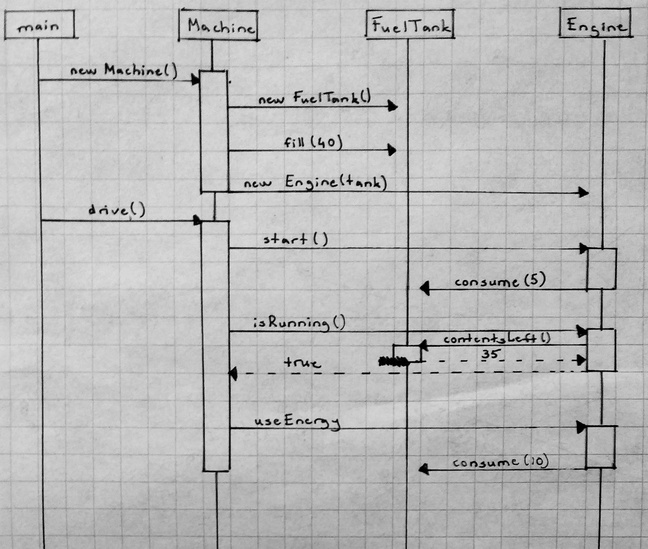 main
Machine
FuelTank
Engine
new Machine()
new FuelTank()
fill(40)
new Engine(tank)
drive()
start()
consume(5)
isRunning()
contentsLeft()
35
true
useEnergy
consume(10)